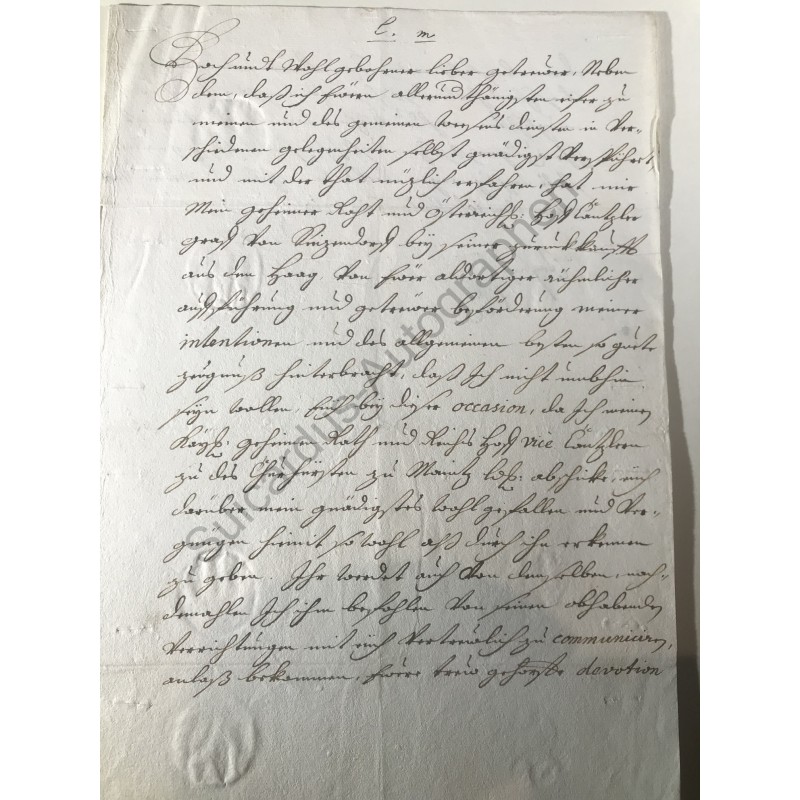 C. M.
Hoch undt Wohlgebohrner lieber getrewer. Neben
dem, daß ich Ewern allerunterthänigsten eifer zu
meinen und des gemeinen weesens diensten in ver-
schiedenen gelegenheiten selbst gnädigst verspühret
und mit der that nüzlich erfahren, hat mir
Mein geheimer Raht und Österreichs: Hoff Cantzler
graff von Sinzendorff bey seiner zuruckkunfft
aus dem Haag von Ewer aldortiger rühmlicher
aufführung und getrewer beförderung meiner
intentionen und des allgemeinen besten so gute
zeugnuß hinterbracht, daß Ich nicht umbhin
seyn wollen Euch bey dieser occasion, da Ich meinen
Kayß: geheimen Rath und Reichs Hoff vice Cantzlern
zu des Churfürsten zu Maintz Ld: abschicke, euch
darüber mein gnädigstes wohlgefallen und ver-
gnügen hiemit so wohl alß durch ihn erkennen
zu geben. Ihr werdet auch von demselben, nach-
demahlen Ich ihm befohlen von seinen obhabenden
verrichtungen mit euch vertrewlich zu communiciren,
anlaß bekommen, Ewere trew gehorsbe devotion
Guicardus-Autographen